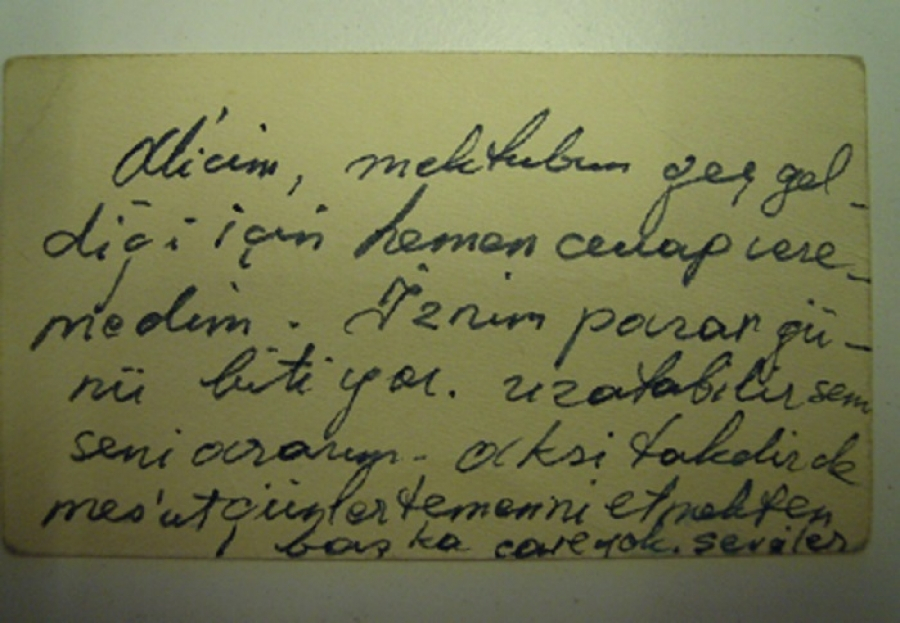 Alicim, mektubun geç gel-
diği için hemen cevap vere-
medim. İznim pazar gü-
nü bitiyor. uzatabilirsem
seni ararım. aksi takdirde
mes'ut günler temenni etmekten
başka çare yok. sevgiler